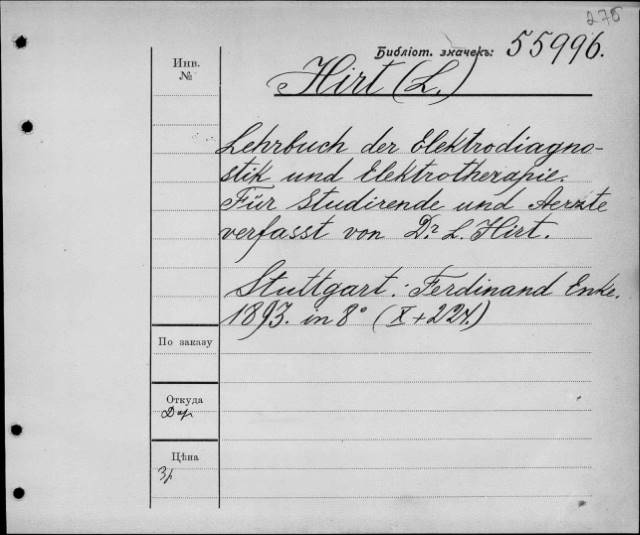 275
Библіот. значекъ: 55996.
Инв.
№
Hirt (L.)
Lehrbuch der Elektrodiagno-
stik und Elektrotherapie.
Für Studirende und Aerzte
verfasst von Dr L. Hirt.
Stuttgart: Ferdinand Enke.
1893. in 8° (X + 224.)
По заказу
Откуда
Дар
Цѣна
3р